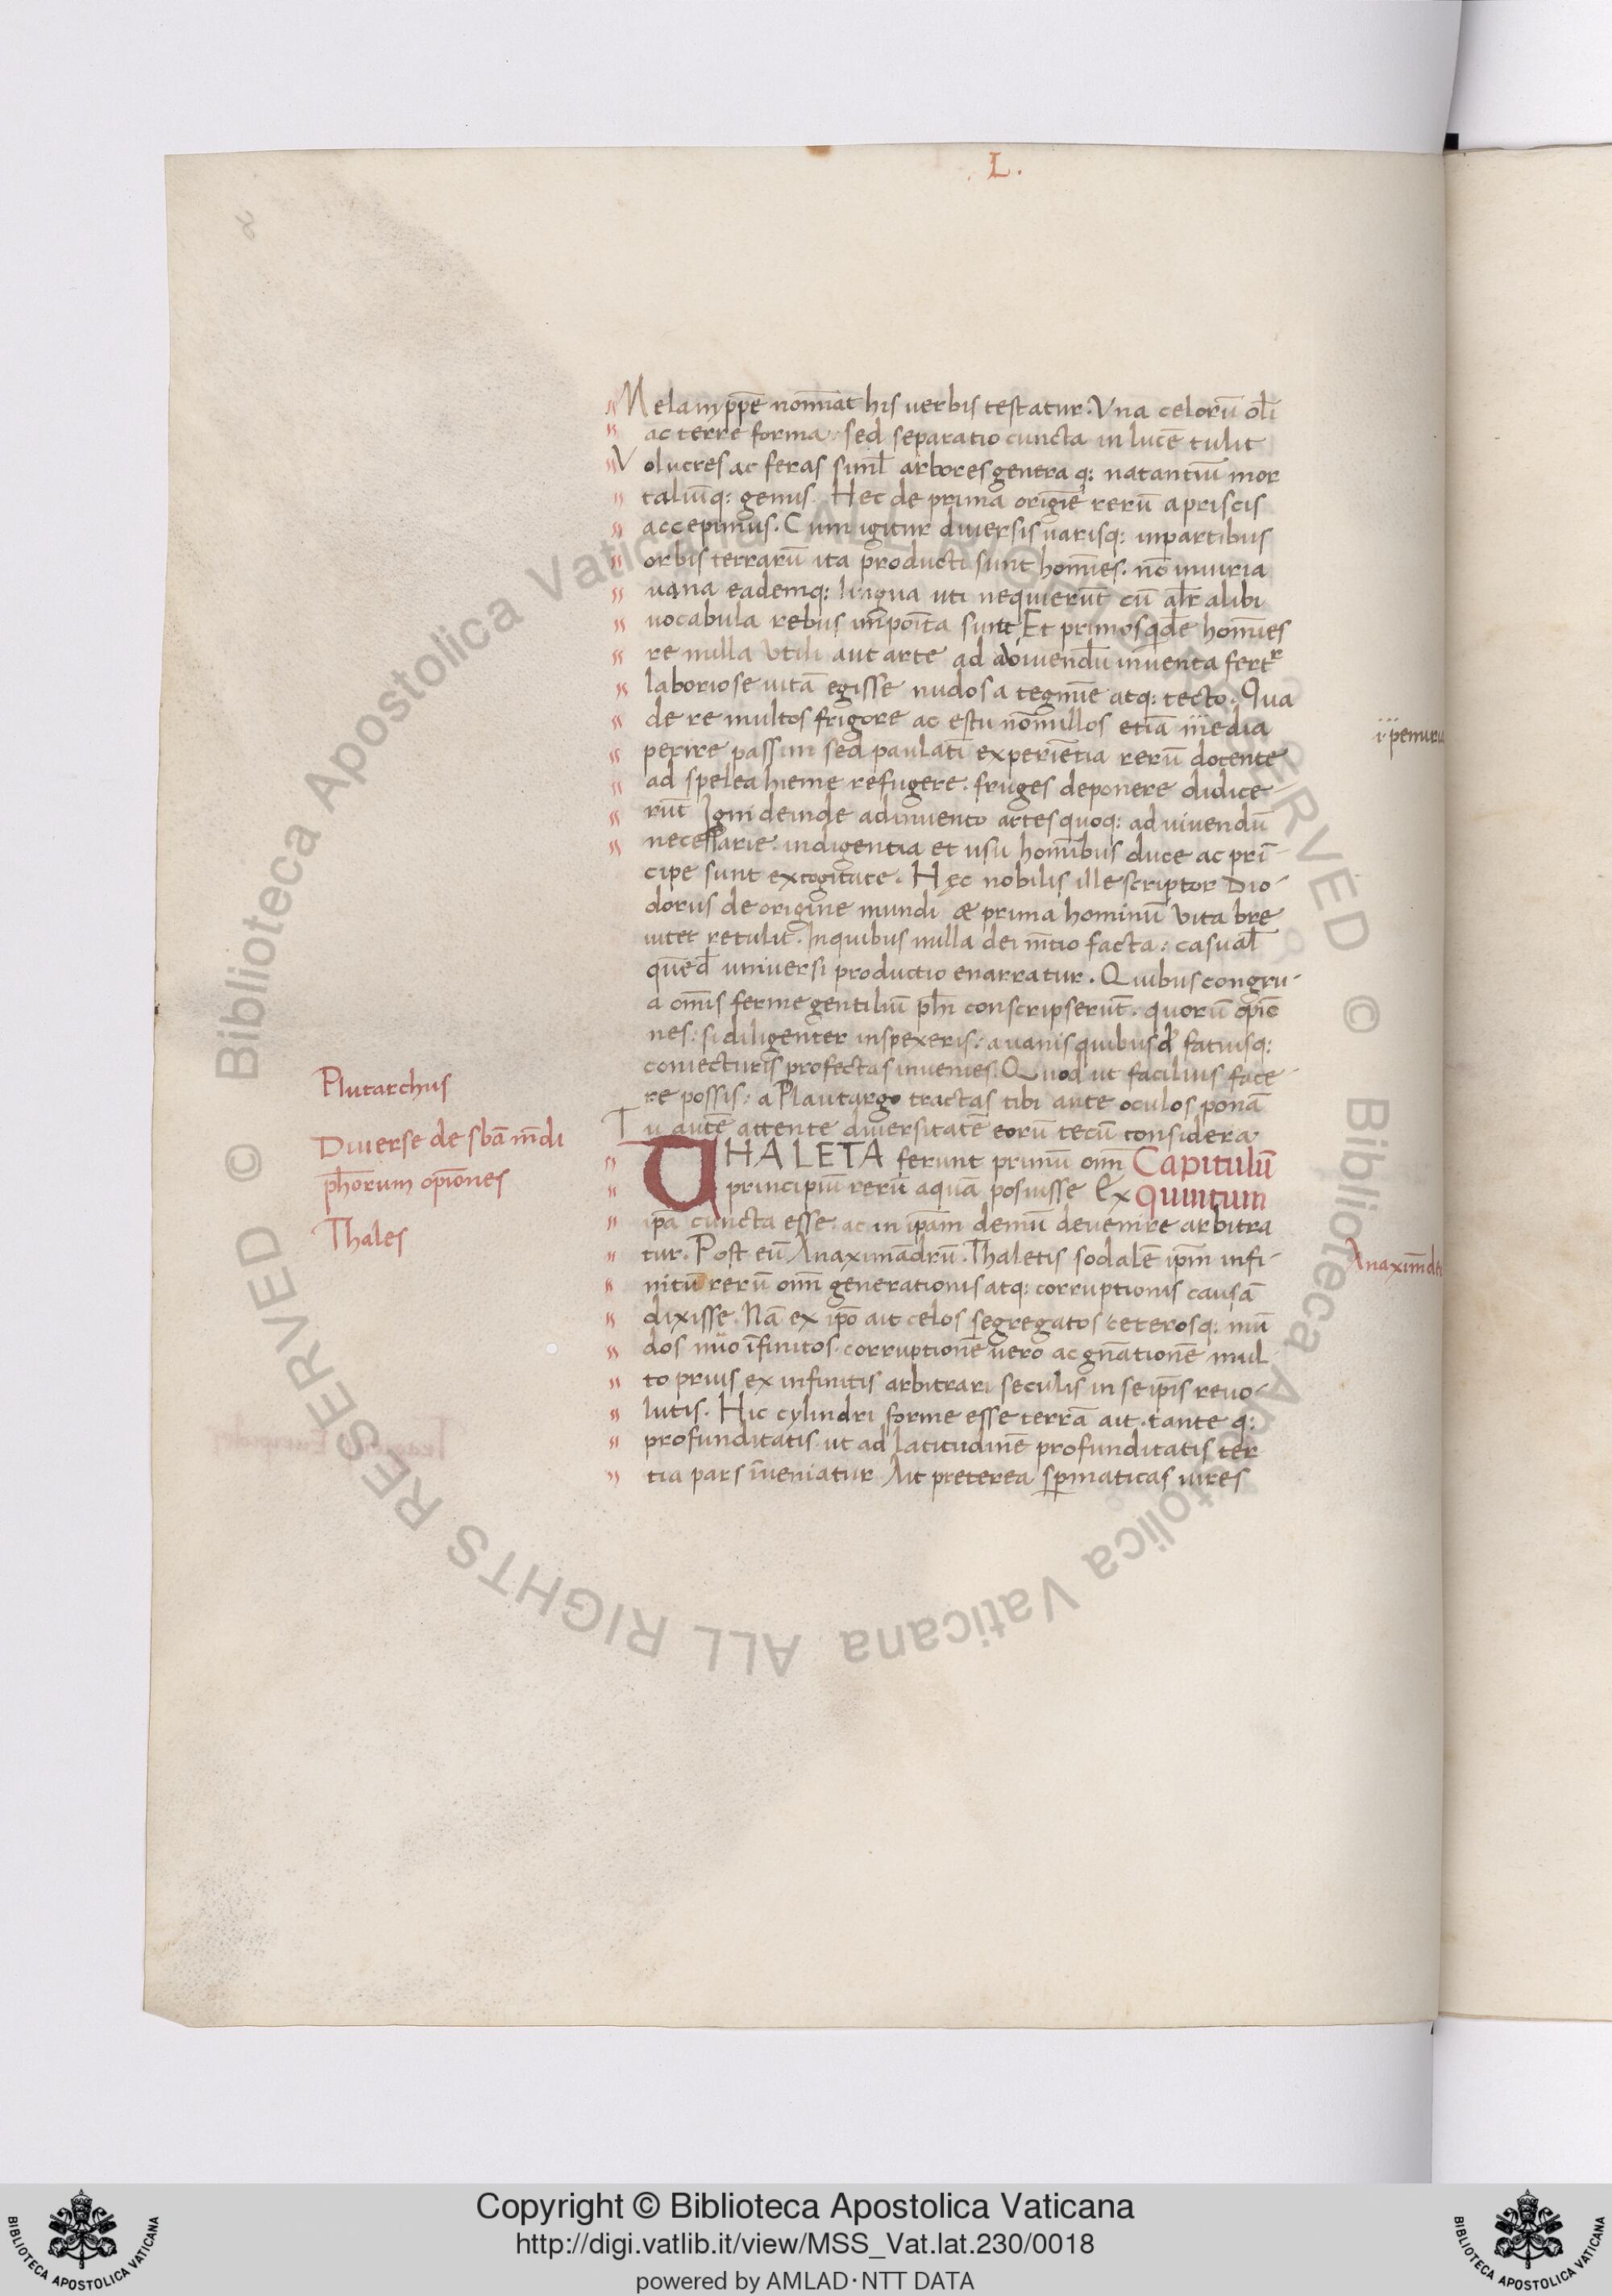 L.
Melamppē nomīat his uerbis testatur. Vna celorū olī
ac terre forma: sed separatio cuncta in lucē tulit
Volucres ac feras simł arbores genera q: natantiū mor
taliūq: genus. Hec de prima origīe rerū a priscis
accepimus. Cum igitur diuersis uariisq: in partibus
orbis terrarū ita producti sunt homīes. nō iniuria
una eademq: lingua uti nequierūt cū alr̄ alibi
uocabula rebus īmpoīta sunt Et primos qidē homīes
re nulla utili aut arte ad uiuendū inuenta fertr
laboriose uitā egisse nudos a tegmīe atq: tecto. Qua
de re multos frigore ac estu nōnullos etiā īnedia
perire passim sed paulatī experiētia rerū docente
ad spelea hieme refugere. fruges deponere didice-
rūt Igni deinde adinuento artes quoq: ad uiuendū
necessarie: indigentia et usu homībus duce ac prī-
cipe sunt excogitate. Hęc nobilis ille scriptor Dio-
dorus de origine mundi & prima hominū uita bre
uiter retulit. In quibus nulla dei m̄tio facta: casual̄
quēd universi productio enarratur. Quibus congru-
a om̄is ferme gentiliū ph̄i conscripserūt. quorū opīo
nes: si diligenter inspexeris: a uanis quibusd fatuisq:
coniecturis profectas inuenies. Quod ut facilius face-
re possis: a Plautargo tractas tibi ante oculos ponā
Tu autē attente diuersitatē eorū tecū considera
THALETA ferunt primū om̄
Capitulū
principiū rerū aquā posuisse Ex
Quintum
ip̄a cuncta esse: ac in ip̄am demū devenire arbitra
tur. Post eū Anaximādrū. Thaletis sodalē ip̄m infi-
nitū rerū om̄ generationis atq: corruptionis causā
dixisse. Nā ex ip̄o ait celos segregatos ceterosq: mū
dos nūo īfinitos. corruptionē uero ac gn̄ationē mul
to prius ex infinitis arbitrari seculis in se ip̄is reuo-
lutis. Hic cylindri forme esse terrā ait. tante q:
profunditatis. ut ad latitudinē profunditatis ter
tia pars īueniatur Ait preterea sp̄maticas uires
Plutarchus
Diuerse de sbā m̄di
ph̄orum opīones
Thales
i penuria
Anaxim̄d
© Biblioteca Apostolica Vaticana ALL RIGHTS RESERVED © Biblioteca Apostolica Vaticana ALL RIGHTS RESERVED
Copyright © Biblioteca Apostolica Vaticana
http://digi.vatlib.it/view/MSS_Vat.lat.230/0018
powered by AMLAD·NTT DATA
BIBLIOTECA APOSTOLICA VATICANA
BIBLIOTECA APOSTOLICA VATICANA